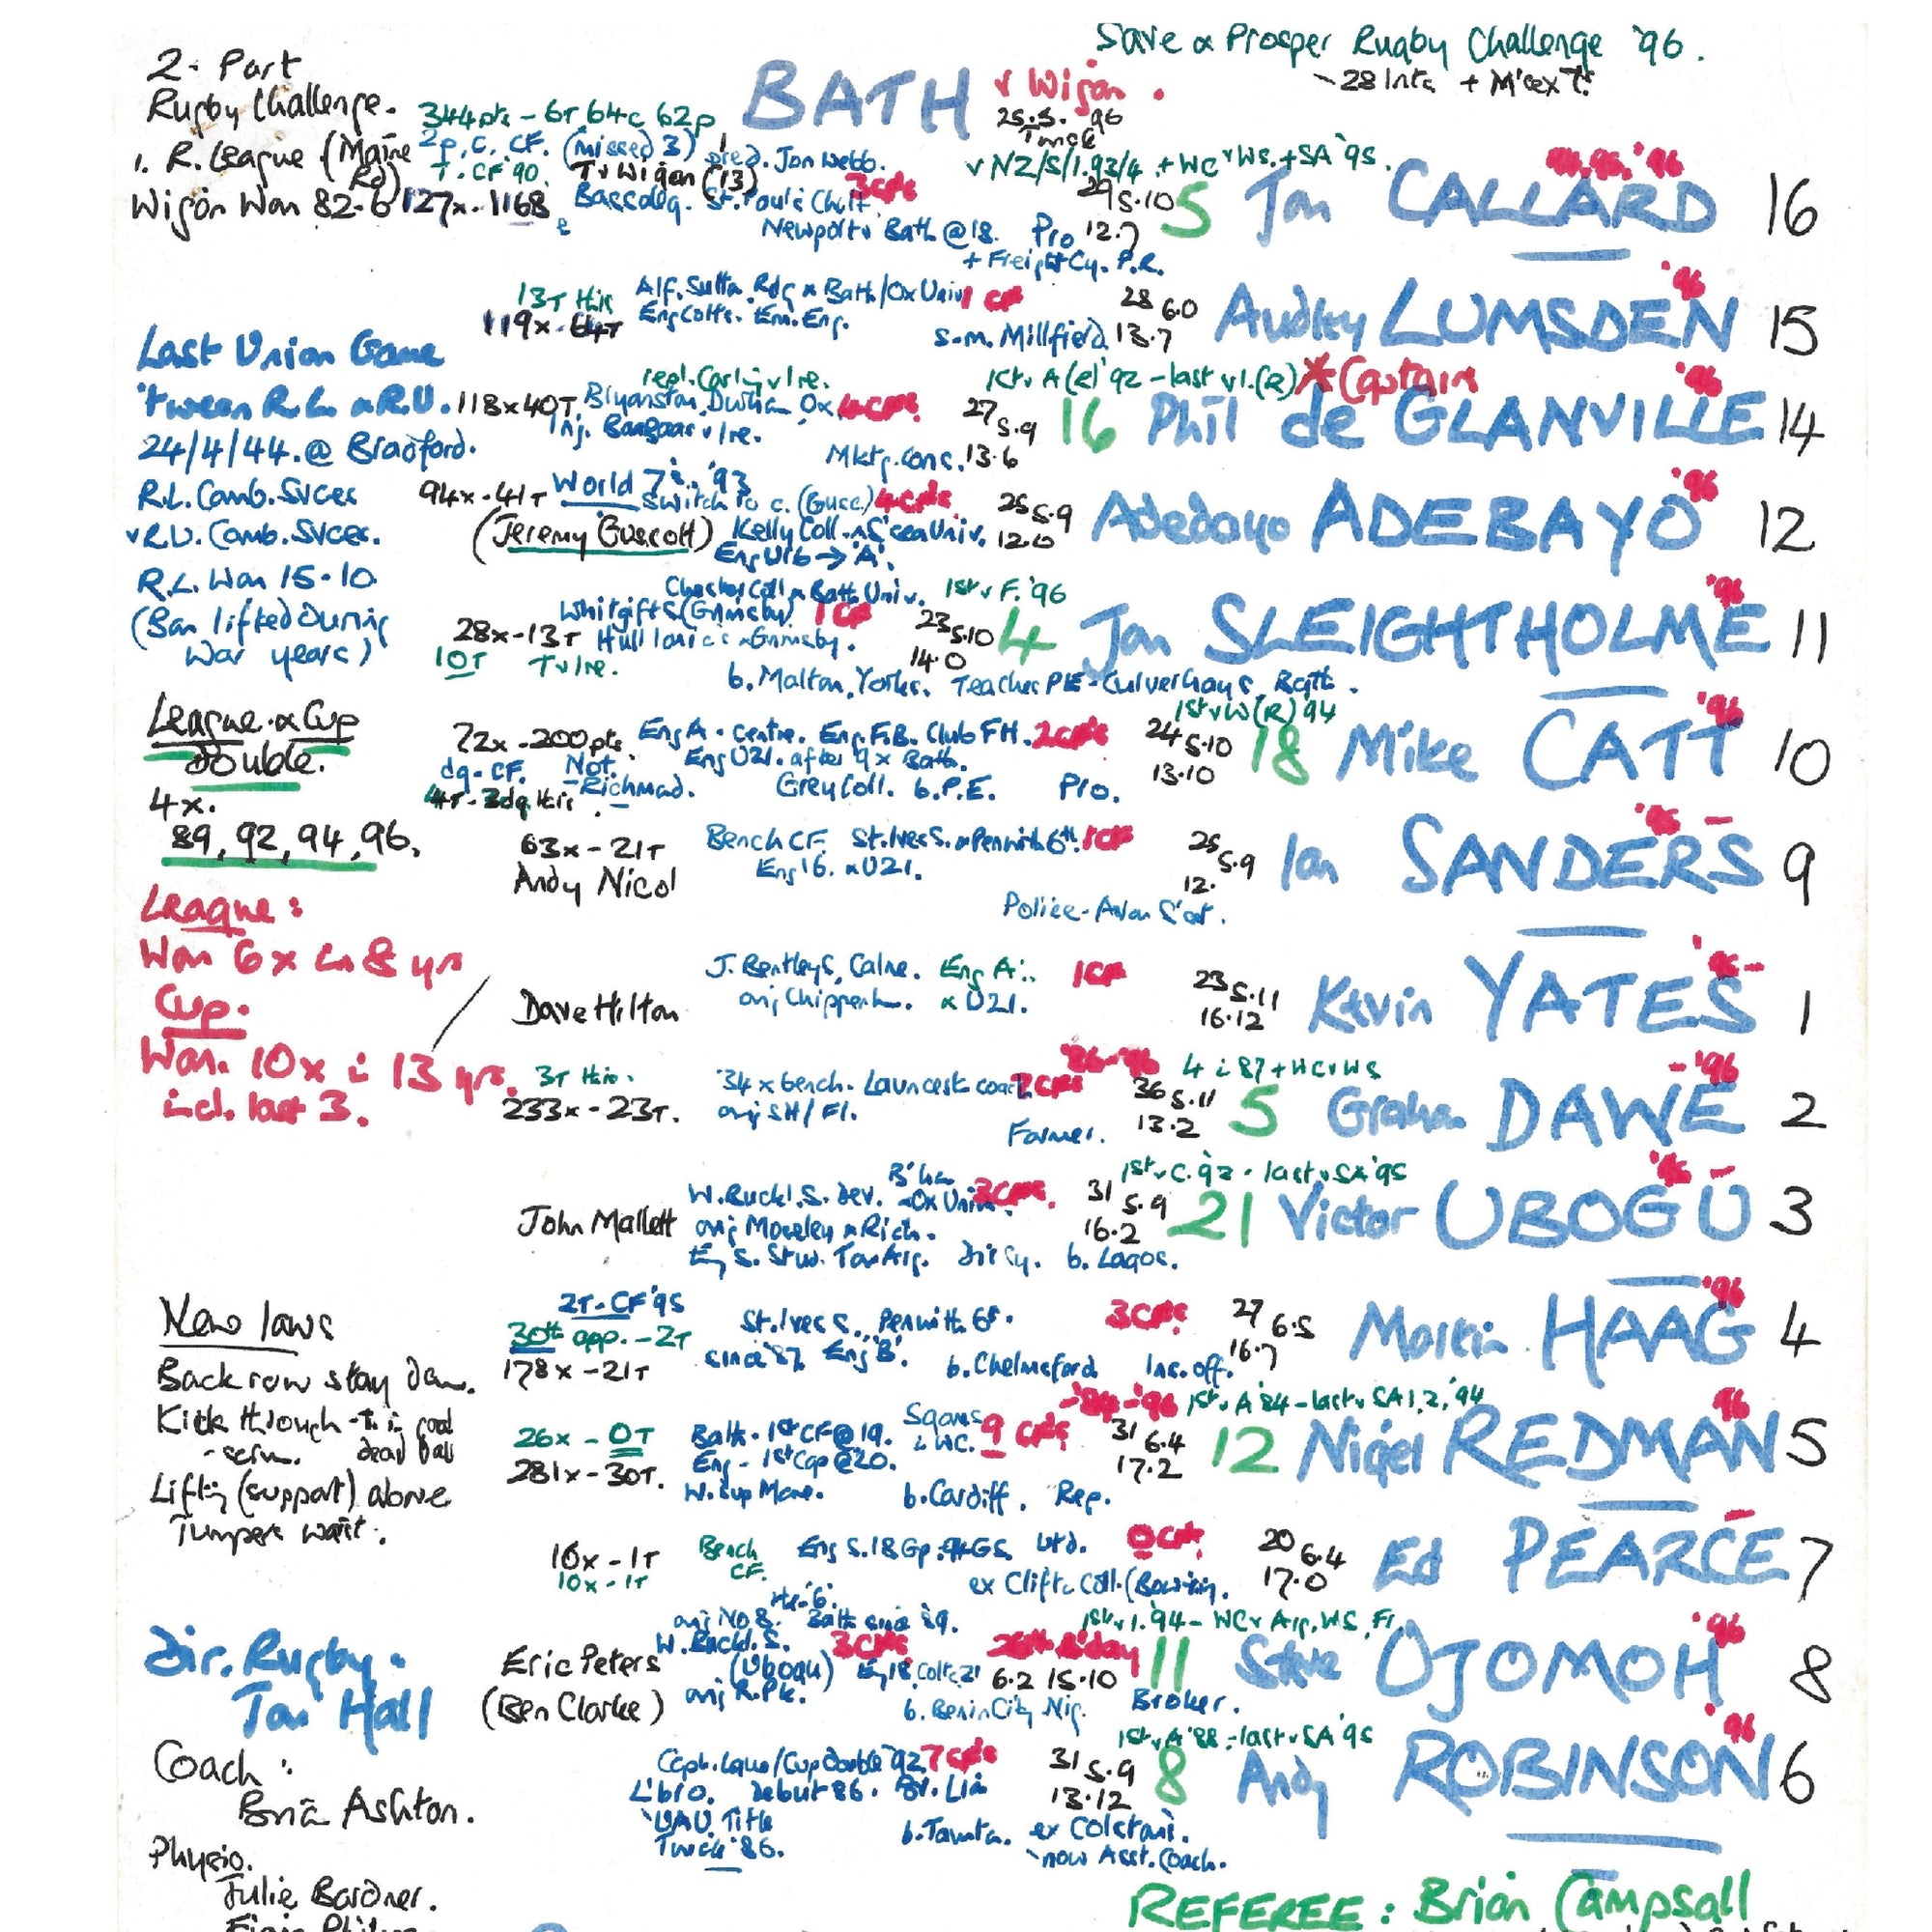 Save & Prosper Rugby Challenge '96.
- 28 Ints + M'sex
2-Part
Rugby Challenge.
BATH v Wigan.
25.5.96
344pts - 6T 64c 62p
1. R. League (Maine Rd)
2p, C. CF. (missed 3) pred. Jon Webb.
T. CF '90. Tv Wigan (13)
v NZ/S/I.93/4 + WC v WS. + SA '95.
Wigan Won 82-6
127x - 1168
Bassaleg. St. Paul's Chelt.
29 5.10
5 Jon CALLARD 16
Newport v Bath @ 18. Pro 12.7
+ Freight Cy. P.R.
13T this
Alf. Sutton Rdg & Bath/Ox Univ 1 CF
119x - 64T
Eng Colts. Em. Eng.
28 6.0
Audley LUMSDEN 15
'96
s-m. Millfield 13.7
Last Union Game
'tween R.L. & R.U.
24/4/44. @ Bradford.
R.L. Comb. Svces
v R.U. Comb. Svces.
R.L. Won 15-10
(Ban lifted during
War years)
repl. Carling v Ire.
1st v A (R) '92 - last v I. (R) * Captain
118x 40T. Bryanston. Durham Ox 4 CFs
27 5.9
16 Phil de GLANVILLE 14
'96
Inj. v Ire.
Mktg. cons. 13.6
94x - 41T World 7s. '93
Switch to c. (Gusc.) 4 CFs
25 5.9
Adedayo ADEBAYO 12
'96
(Jeremy Guscott) Kelly Coll. & S'sea Univ. 12.0
Eng U16 → 'A'.
Chester Coll & Bath Univ. 1st v F. '96
Whitgift S (Grimsby) 1 CF
28x - 13T Hull Ionians & Grimsby.
23 5.10
14.0
4 Jon SLEIGHTHOLME 11
'96
10T Tv Ire.
b. Malton, Yorks. Teacher PE - Culverhay S, Bath.
League & Cup
double.
4x.
89, 92, 94, 96.
1st v W (R) '94
72x - 200 pts Eng A - centre. Eng. F.B. Club FH. 2 CFs
24 5.10
13.10
18 Mike CATT 10
'96
dg - CF. Not Richmnd.
Eng U21. after 9 x Bath.
4T - 3dg this
Grey Coll. b. P.E. Pro.
63x - 21T
Andy Nicol
Bench CF. St. Ives S. & Penwith 6th. 1 CF
Eng 16. & U21.
25 5.9
12.
Ian SANDERS 9
Police - Avon S'set.
League:
Won 6x in 8 yrs
Cup.
Won. 10x in 13 yrs.
incl. last 3.
Dave Hilton
J. Bentley S, Calne. Eng A. 1 CF
orig Chippenh. & U21.
23 5.11
16.12
Kevin YATES 1
'86-'96
4 in 87 + WC v WS
3T this.
233x - 23T.
34 x bench. Launcest. coach 7 CFs
orig SH/Fl.
Farmer.
36 5.11
13.2
5 Graham DAWE 2
- '96
1st v C. '92 - last v SA '95
John Mallett
W. Buckl. S. Dev. B'ham - Ox Univ. 3 CFs.
orig Moseley & Rich.
Eng S. Stud. Tour Arg. Dir Cy. b. Lagos.
31 5.9
16.2
21 Victor UBOGU 3
New laws
Back row stay down.
Kick through
dead ball
Lifting (support) above
Jumpers waist.
2T - CF '95
30th app. - 2T
178x - 21T
St. Ives S. Penwith 6th.
since '87. Eng 'B'.
b. Chelmsford Ins. off.
3 CFs
27 6.5
16.7
Martin HAAG 4
'96
-'84-'96 1st v A '84 - last v SA 1, 2, '94
26x - 0T
281x - 30T.
Bath - 1st CF @ 19.
Eng - 1st Cap @ 20.
W. Cup Mare.
Sqans in WC.
9 CFs
31 6.4
17.2
12 Nigel REDMAN 5
'96
b. Cardiff. Rep.
16x - 1T
10x - 1T
Bench CF.
Eng S. 18 Gp. Utd.
0 CFs
20 6.4
17.0
Ed PEARCE 7
ex Clifton Coll.
orig No 8. Bath since '89.
1st v I. '94 - WC v Arg, WS, Fr.
Dir. Rugby.
Jon Hall
Eric Peters
(Ben Clarke)
W. Buckl. S. (Ubogu) 3 CFs
Eng 18, Colts, 21
orig R. Pk.
26th B'day
6.2 15.10
11 Steve OJOMOH 8
'96
b. Benin City Nig. Broker.
1st v A '88 - last v SA '95
Coach:
Brian Ashton.
Capt. Lgue/Cup double '92 7 CFs
L'bro. Debut 86. Br. Lion
UAU Title
Twick '86.
31 5.9
13.12
8 Andy ROBINSON 6
'96
b. Taunton. ex Colston's.
now Asst. Coach.
Physio.
Julie Bardner.
REFEREE: Brian Campsall